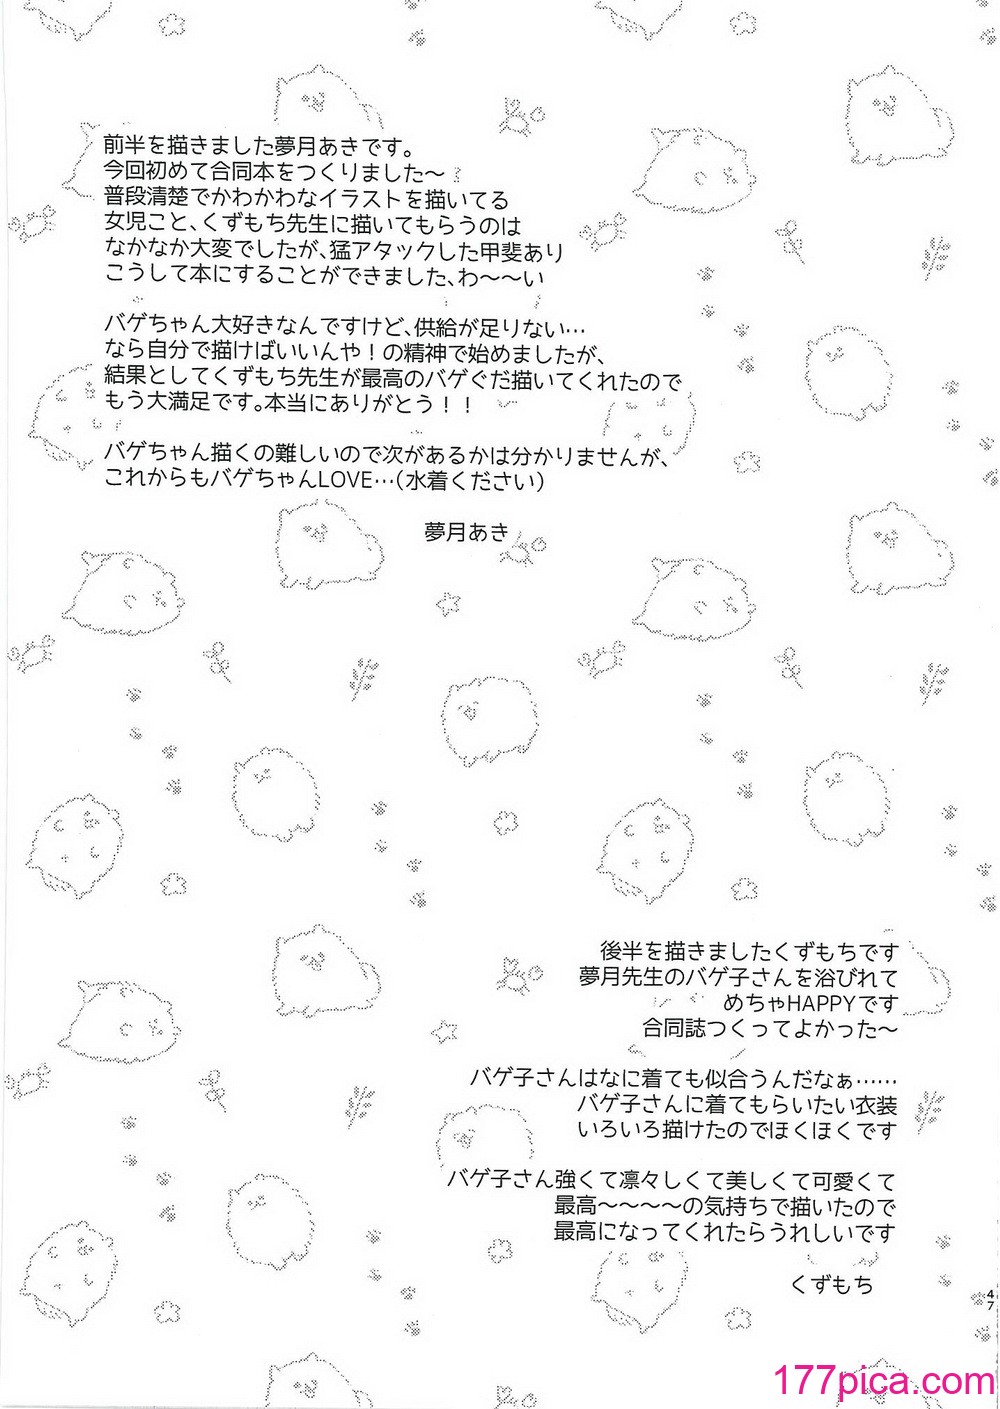 前半を描きました夢月あきです。
今回初めて合同本をつくりました～
普段清楚でかわかわなイラストを描いてる
女児こと、くずもち先生に描いてもらうのは
なかなか大変でしたが、猛アタックした甲斐あり
こうして本にすることができました、わ～～い
バゲちゃん大好きなんですけど、供給が足りない…
なら自分で描けばいいんや！の精神で始めましたが、
結果としてくずもち先生が最高のバゲぐだ描いてくれたので
もう大満足です。本当にありがとう！！
バゲちゃん描くの難しいので次があるかは分かりませんが、
これからもバゲちゃんLOVE…（水着ください）
夢月あき
後半を描きましたくずもちです
夢月先生のバゲ子さんを浴びれて
めちゃHAPPYです
合同誌つくってよかった～
バゲ子さんはなに着ても似合うんだなぁ……
バゲ子さんに着てもらいたい衣装
いろいろ描けたのでほくほくです
バゲ子さん強くて凛々しくて美しくて可愛くて
最高～～～～の気持ちで描いたので
最高になってくれたらうれしいです
くずもち
47
177pica.com